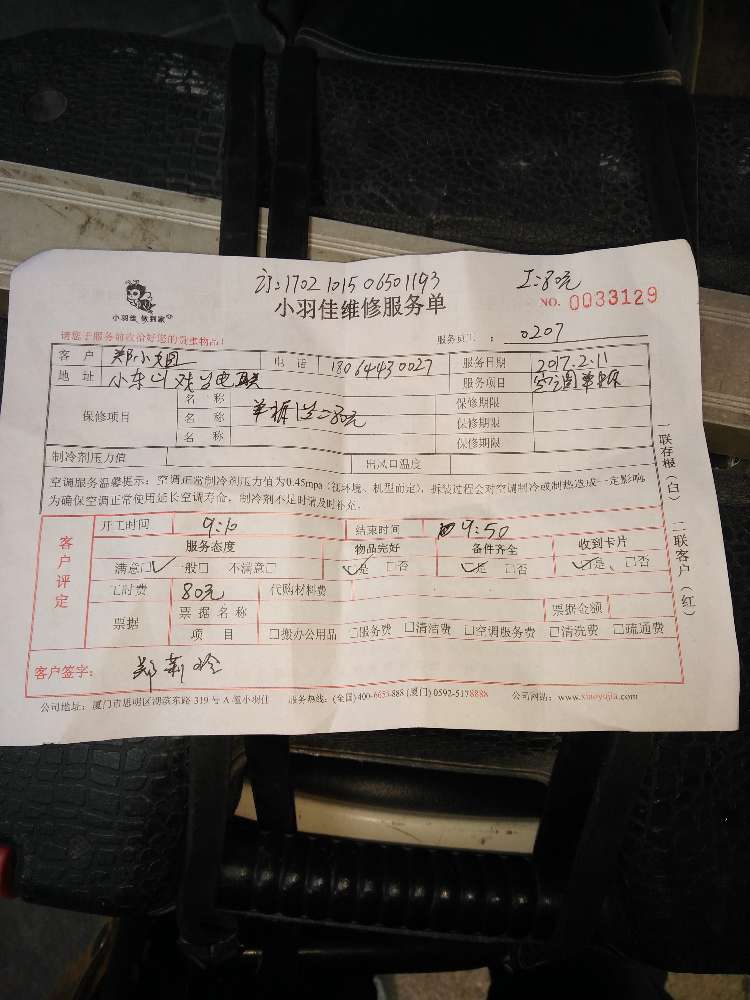 订:1702 1015 06501193 工:80元
小羽佳 做到家
小羽佳维修服务单 NO. 0033129
请您于服务前收佮好您的贵重物品! 服务员工 : 0207
客 户 郑小姐 电 话 18064430027 服务日期 2017.2.11
地 址 小东山 服务项目 空调单拆
保修项目 名 称 保修期限
名 称 单拆 80元 保修期限
名 称 保修期限
制冷剂压力值 出风口温度
空调服务温馨提示:空调正常制冷剂压力值为0.45mpa(视环境、机型而定),拆装过程会对空调制冷或制热造成一定影响,
为确保空调正常使用延长空调寿命,制冷剂不足时请及时补充。
客户评定
开工时间 9:10 结束时间 9:50
服务态度 物品完好 备件齐全 收到卡片
满意☑ 一般□ 不满意□ ☑是 □否 ☑是 □否 ☑是 □否
工时费 80元 代购材料费
票据 票 据 名 称 票据金额
项 目 □搬办公用品 □服务费 □清洁费 □空调服务费 □清洗费 □疏通费
客户签字: 郑
公司地址:厦门市思明区湖滨东路 319 号 A 座小羽佳 服务热线:(全国)400-6653-888 (厦门) 0592-5178888 公司网站:www.xiaoyujia.com
一联存根(白) 二联客户(红)